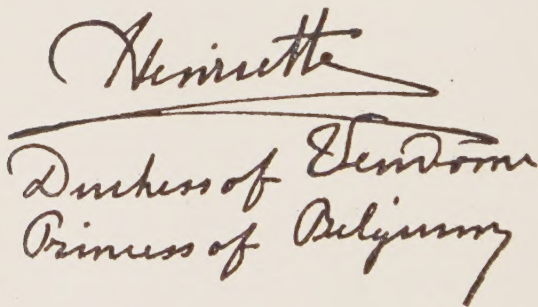 Henriette
Duchess of Vendôme
Princess of Belgium